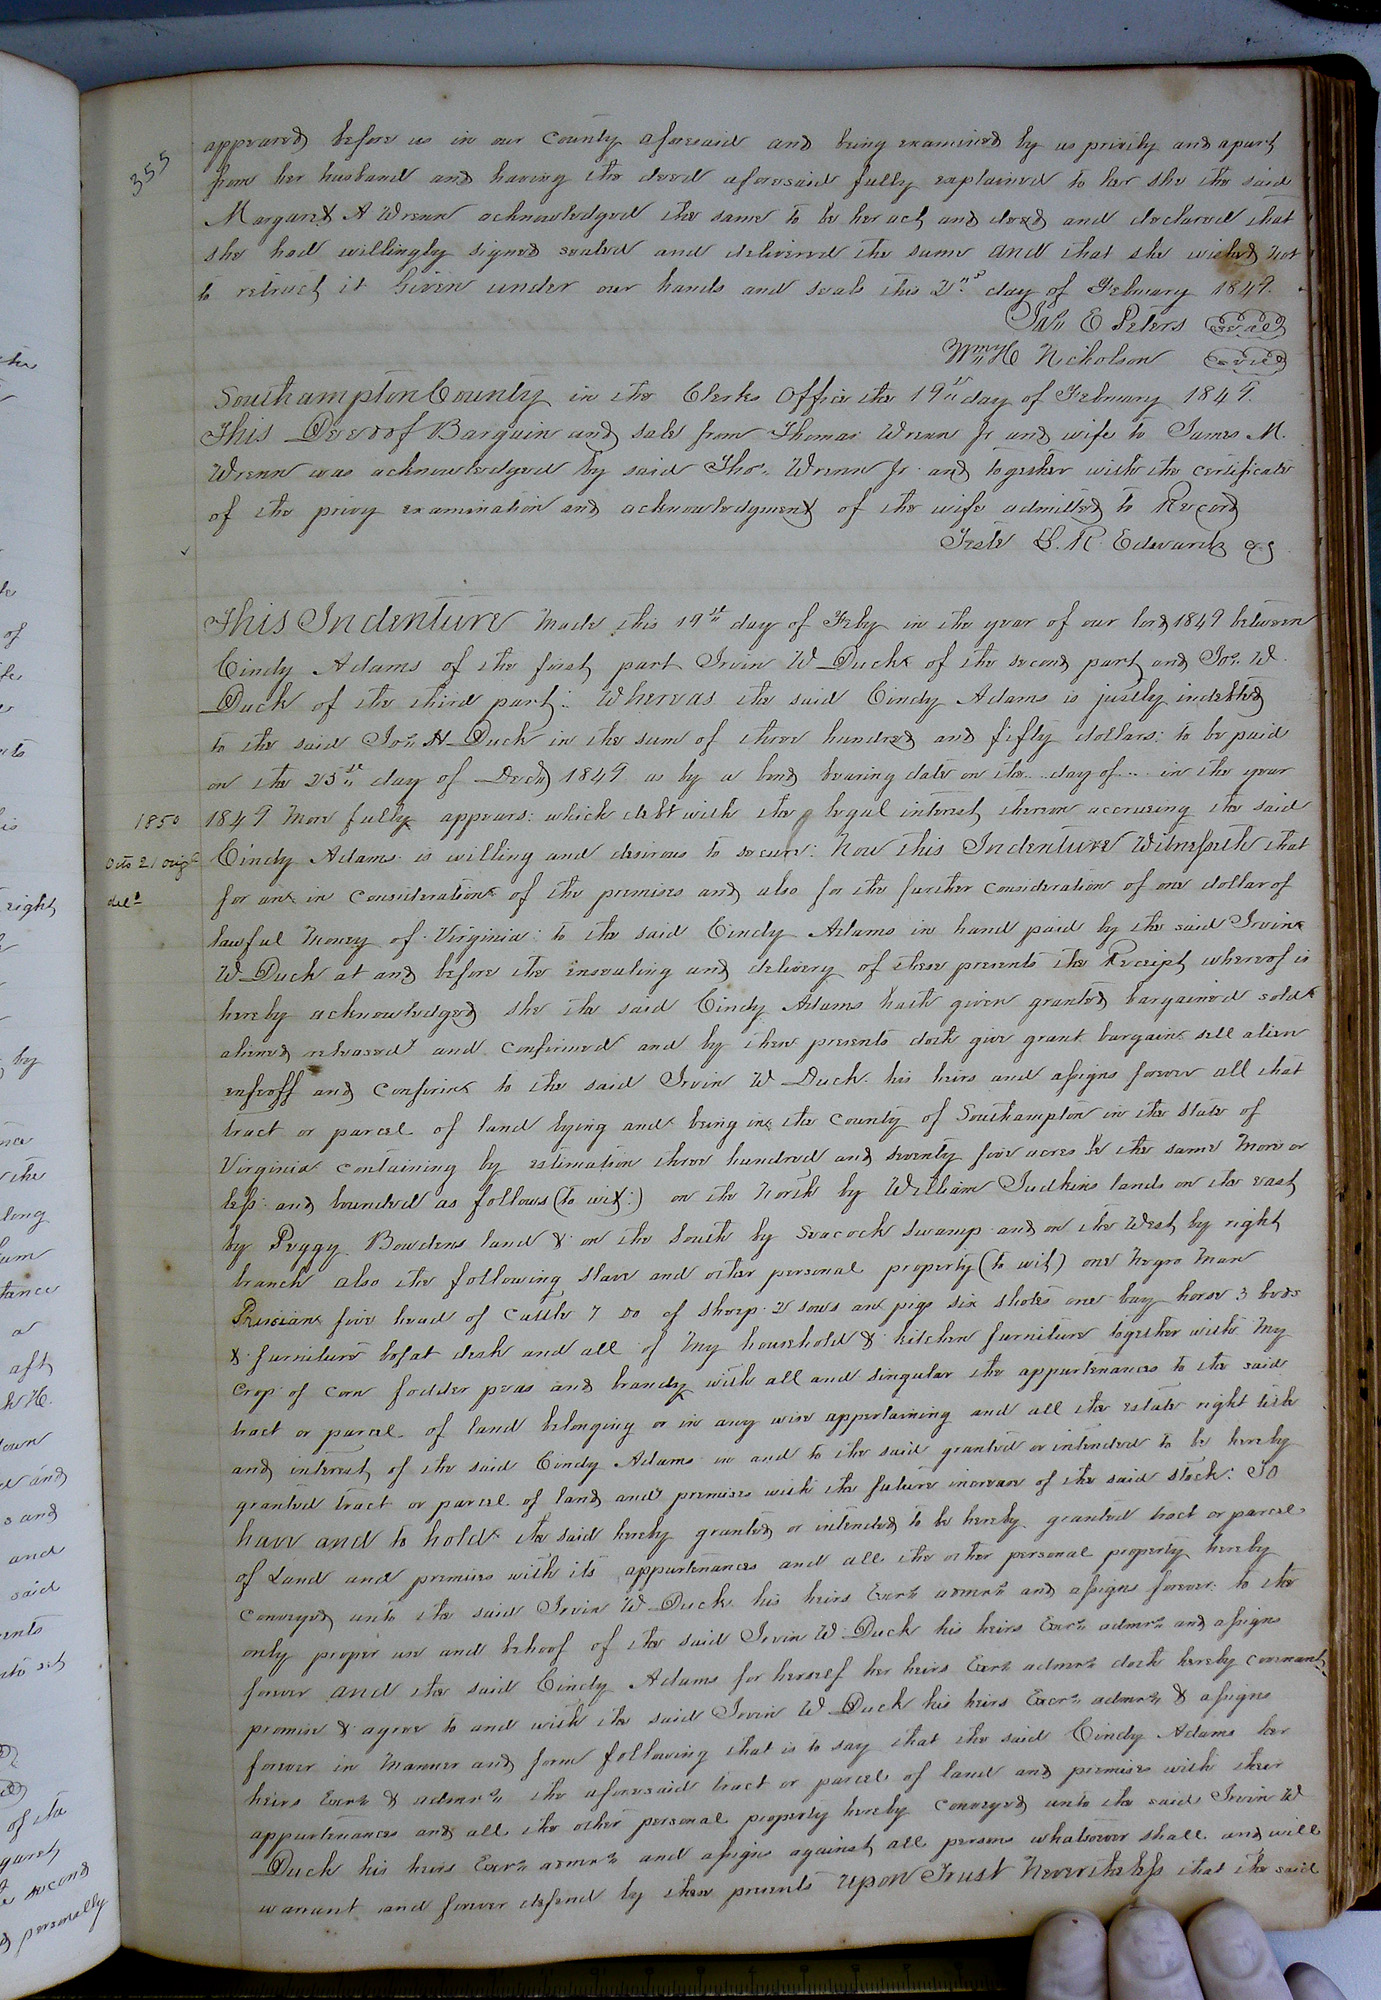 355
appeared before us in our County aforesaid and being examined by us privily and apart
from her husband and having the deed aforesaid fully explained to her she the said
Margaret A Wrenn acknowledged the same to be her act and deed and declared that
she had willingly signed sealed and delivered the same and that she wished not
to retract it Given under our hands and seals this 2nd day of February 1849.
Jas E Peters Seal
Wm H Nicholson Seal
Southampton County in the Clerks Office the 19th day of February 1849.
This Deed of Bargain and sale from Thomas Wrenn Jr and wife to James M.
Wrenn was acknowledged by said Thos. Wrenn Jr and together with the certificate
of the privy examination and acknowledgment of the wife admitted to Record
Teste L. R. Edwards cs
This Indenture Made this 19th day of Feby in the year of our lord 1849 between
Cindy Adams of the first part Irvin W Duck of the second part and Jos. W.
Duck of the third part: Whereas the said Cindy Adams is justly indebted
to the said Jos. H Duck in the sum of three hundred and fifty dollars: to be paid
on the 25th day of Decr 1849 as by a bond bearing date on the .. day of .. in the year
1850
1849 More fully appears: which debt with the legal interest thereon accruing the said
Octo 21 Orig
Cindy Adams is willing and desirous to secure: Now this Indenture Witnesseth that
deld
for an in consideration of the premises and also for the further consideration of one dollar of
lawful Money of Virginia: to the said Cindy Adams in hand paid by the said Irvin
W Duck at and before the ensealing and delivery of these presents the Receipt whereof is
hereby acknowledged she the said Cindy Adams hath given granted bargained sold
aliened released and confirmed and by these presents doth give grant bargain sell alien
enfeoff and confirm to the said Irvin W Duck his heirs and assigns forever all that
tract or parcel of land lying and being in the County of Southampton in the State of
Virginia containing by estimation three hundred and seventy five acres be the same More or
less and bounded as follows (to wit:) on the North by William Judkins lands on the east
by Peggy Bowdens land & on the South by Seacock Swamp and on the West by right
branch also the following slave and other personal property (to wit) one Negro Man
five head of Cattle 7 Do of sheep 2 sows an pigs six shotes one bay horse 3 beds
& furniture desk and all of My household & kitchen furniture together with My
Crop of corn fodder peas and brandy with all and singular the appurtenances to the said
tract or parcel of land belonging or in any wise appertaining and all the estate right title
and interest of the said Cindy Adams in and to the said granted or intended to be hereby
granted tract or parcel of land and premises with the future increase of the said stock: To
have and to hold the said hereby granted or intended to be hereby granted tract or parcel
of Land and premises with its appurtenances and all the other personal property hereby
conveyed unto the said Irvin W Duck his heirs Exors admrs and assigns forever: to the
only proper use and behoof of the said Irvin W Duck his heirs Exors admrs and assigns
forever and the said Cindy Adams for herself her heirs Exors admrs doth hereby covenant
promise & agree to and with the said Irvin W Duck his heirs Exors admrs & assigns
forever in Manner and form following that is to say that the said Cindy Adams her
heirs Exors & admrs the aforesaid tract or parcel of land and premises with their
appurtenances and all the other personal property hereby conveyed unto the said Irvin W
Duck his heirs Exors admrs and assigns against all persons whatsoever shall and will
warrant and forever defend by these presents Upon Trust Nevertheless that the said